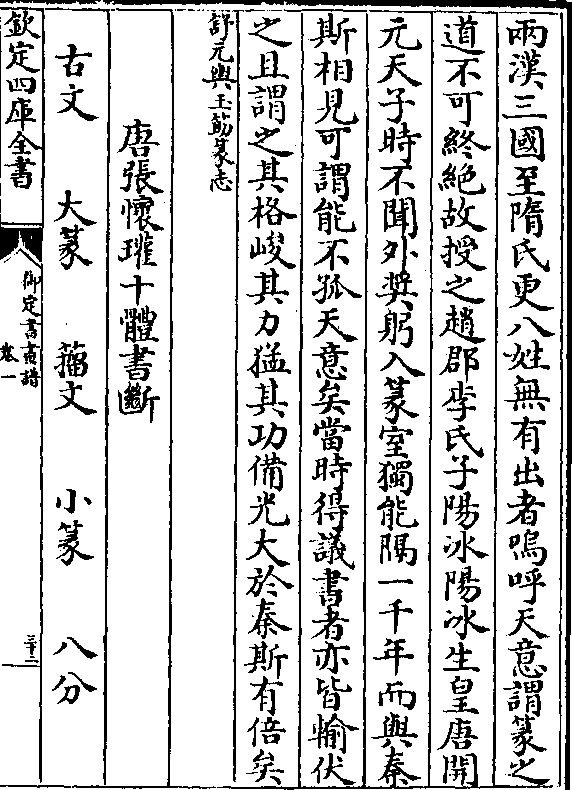 兩漢三國至隋氏更八姓無有出者嗚呼天意謂篆之
道不可終絶故授之趙郡李氏子陽冰陽冰生皇唐開
元天子時不聞外奬躬入篆室獨能隔一千年而與秦
斯相見可謂能不孤天意矣當時得議書者亦皆輸伏
之且謂之其格峻其力猛其功備光大於秦斯有倍矣
舒元輿玉筯篆志
唐張懷瓘十體書斷
古文 大篆 籀文 小篆 八分
欽定四庫全書
御定書畫譜
卷一
三十二